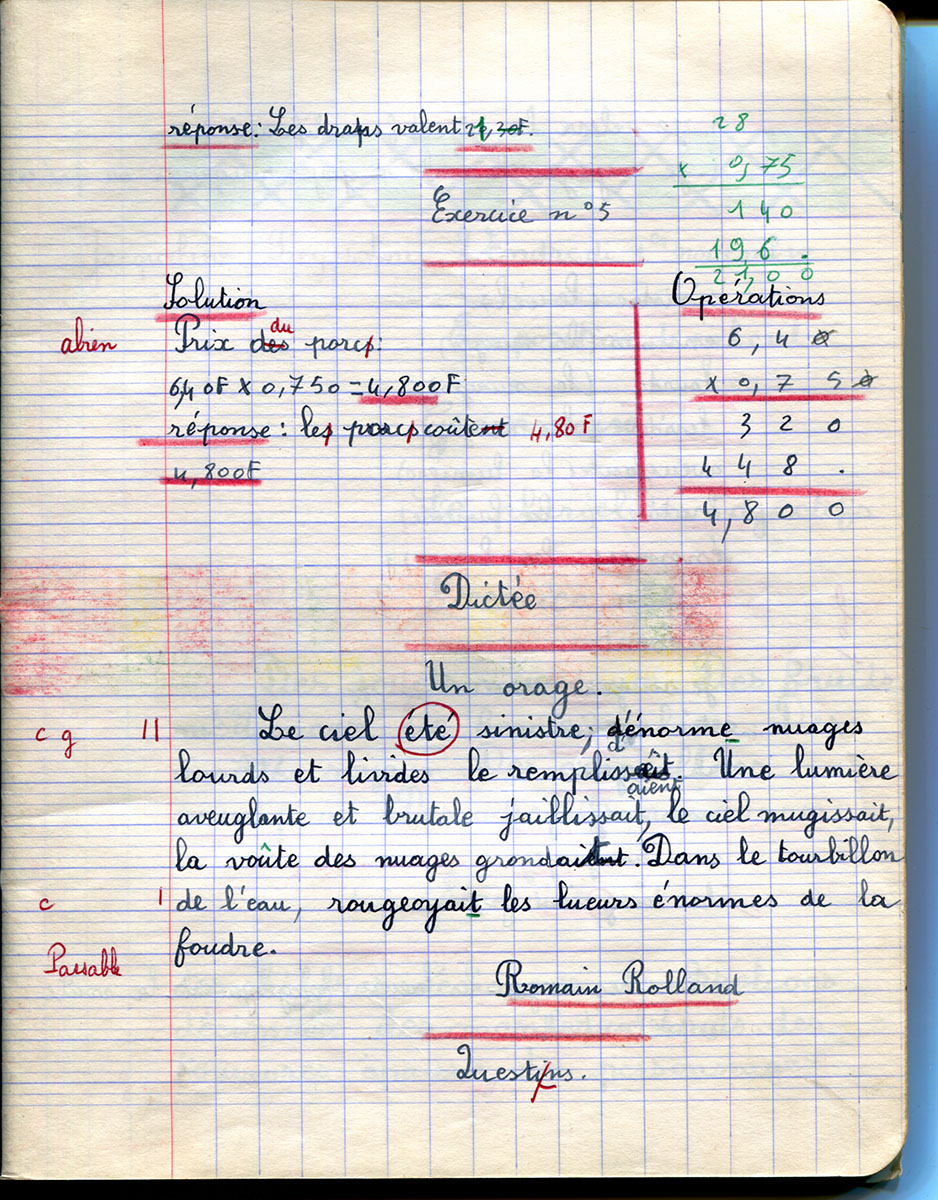 réponse: Les draps valent 21,30F.
28
x 0,75
140
196.
21,00
Exercice n°5
Solution
Opérations
abien
Prix des du porcs:
6,40F x 0,750 = 4,800F
réponse: les porcs coûtent 4,80F
4,800F
6,40
x 0,750
320
448.
4,800
Dictée
Un orage.
cg II Le ciel été sinistre; d'énorme nuages
d'
lourds et livides le remplissait. Une lumière
aient
aveuglante et brutale jaillissait, le ciel mugissait,
la voûte des nuages grondait. Dans le tourbillon
c I de l'eau, rougeoyait les lueurs énormes de la
foudre.
Passable
Romain Rolland
Questins.